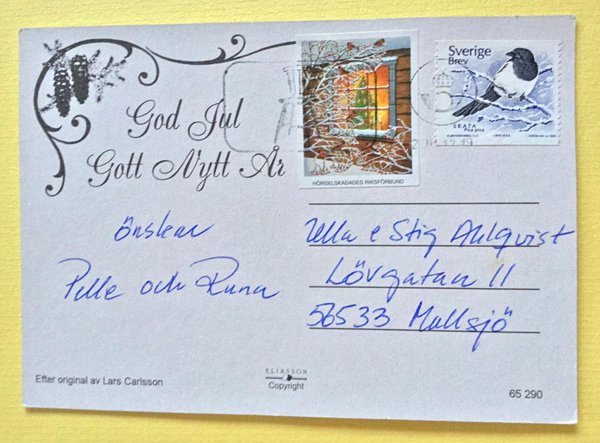 God Jul
Gott Nytt År
önskar
Pelle och Runa
HÖRSELSKADADES RIKSFÖRBUND
Sverige
Brev
SKATA
Pica pica
Ulla e Stig Ahlqvist
Lövgatan 11
56533 Mullsjö
Efter original av Lars Carlsson
ELIASSON
Copyright
65 290